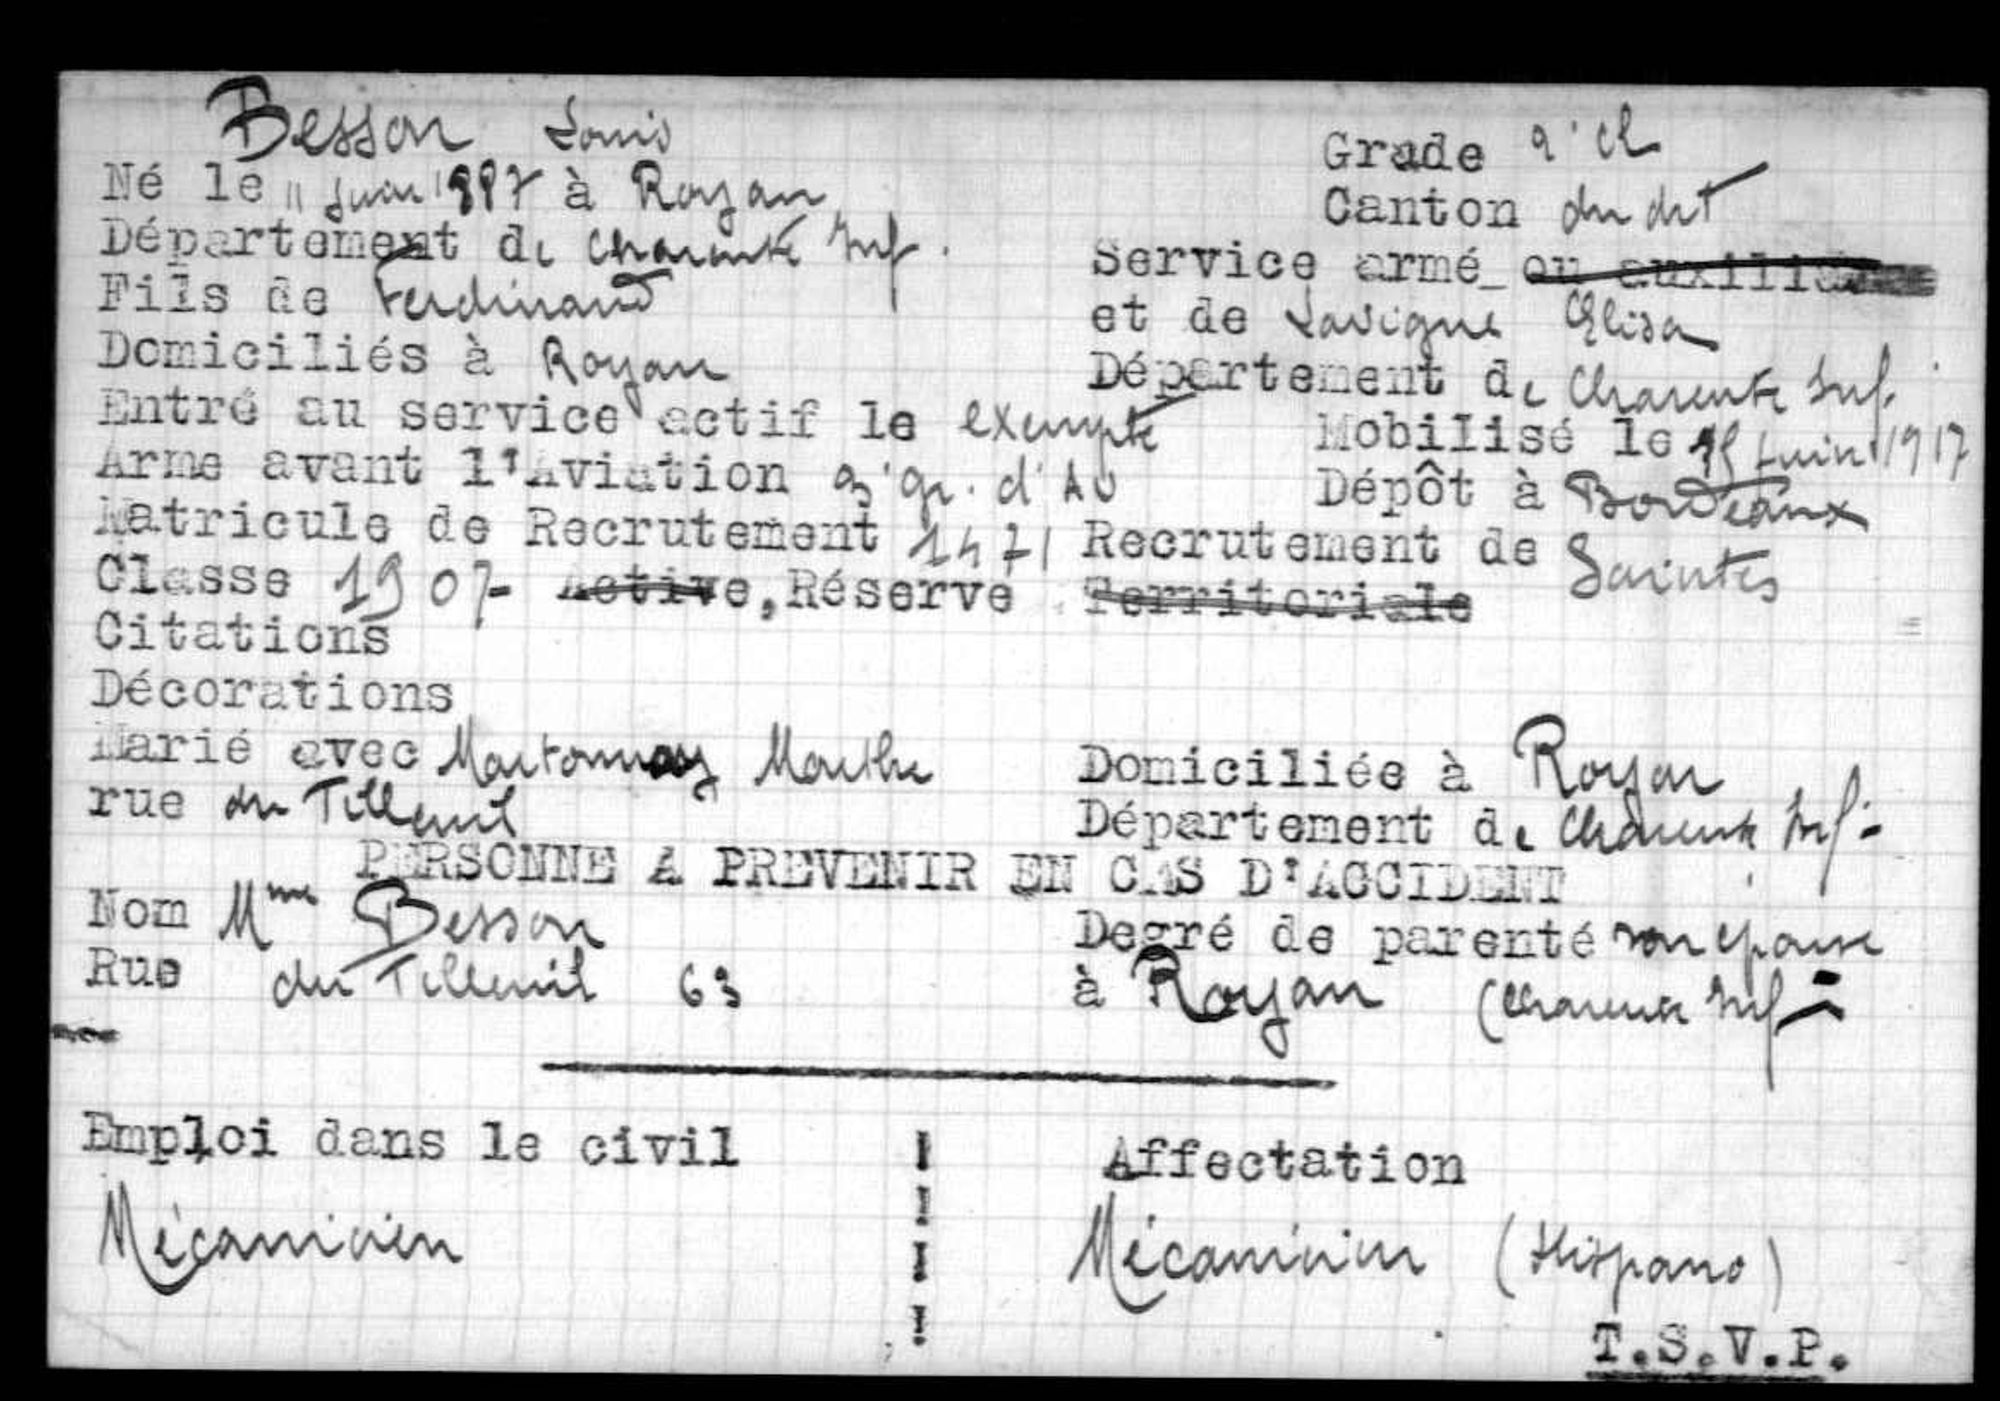 Besson Louis
Grade 2e Cl
Né le 11 Juin 1887 à Royan
Canton du dit
Département de Charente Inf.
Service armé ou auxiliaire
Fils de Ferdinand
et de Lavigne Elisa
Domiciliés à Royan
Département de Charente Inf.
Entré au service actif le exempté
Mobilisé le Juin 1917
Arme avant l'Aviation 3e gr. d'Av
Dépôt à Bordeaux
Matricule de Recrutement 1471
Recrutement de Saintes
Classe 1907- Active, Réserve Territoriale
Citations
Décorations
Marié avec Marthe
Domiciliée à Royan
rue du Tilleuil
Département de Charente Inf-
PERSONNE A PREVENIR EN CAS D'ACCIDENT
Nom Mme Besson
Degré de parenté son épouse
Rue du Tilleuil 63
à Royan (Charente Inf
Emploi dans le civil
Affectation
Mécanicien
Mécanicien (Hispano)
T.S.V.P.